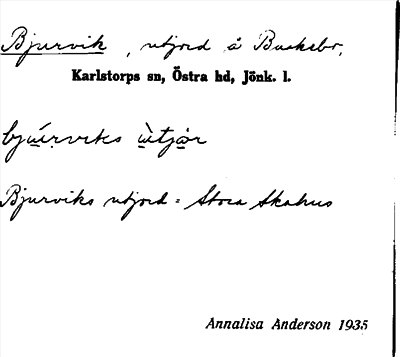 Bjurvik, utjord å Buskebo,
Karlstorps sn, Östra hd, Jönk. l.
bjúrviks ùtjơr
Bjurviks utjord = Stora Skahus
Annalisa Anderson 1935